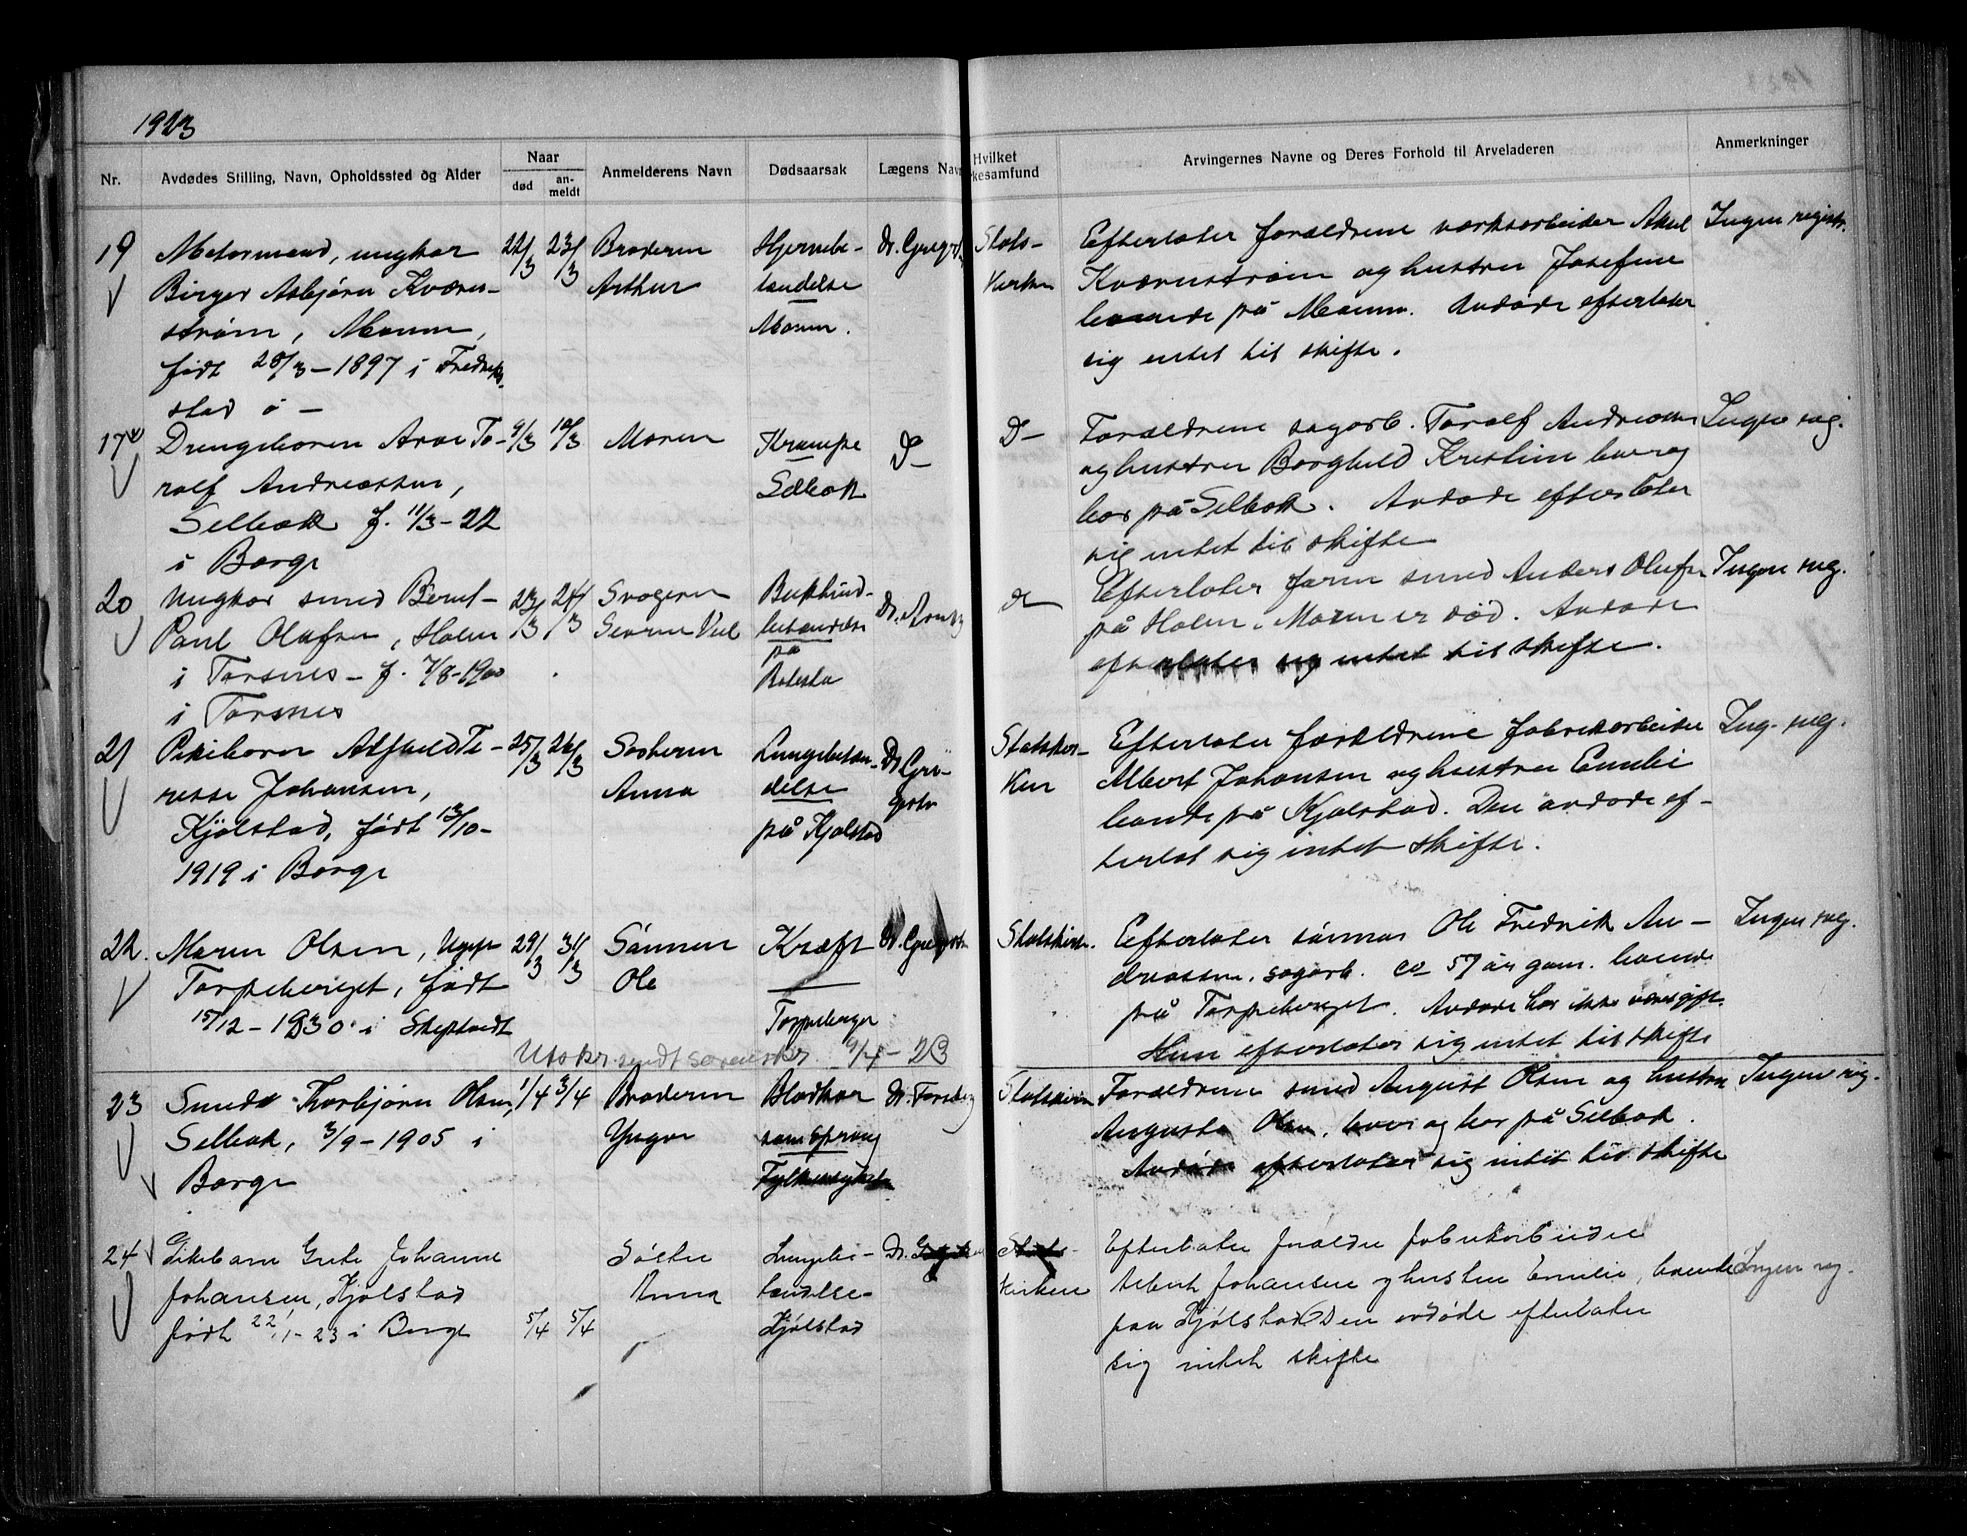 1923
Nr.
Avdødes Stilling, Navn, Opholdssted og Alder
Naar
død
an-
meldt
Anmelderens Navn
Dødsaarsak
Lægens Navn
Hvilket
kesamfund
Arvingernes Navne og Deres Forhold til Arveladeren
Anmerkninger
19
Motormand, ungkar
Birger Asbjørn Kværn-
strøm, Moum,
født 28/3-1897 i Fredrik-
stad
22/3
23/3
Broderen
Arthur
Hjernebe-
tendelse
Moum.
Dr.
Stats-
kirken
Efterlater forældrene verksarbeider Aksel
Kværnstrøm og hustru Josefine
boende på Moum. Avdøde efterlater
sig intet til skifte.
Ingen registr.
17
Drengebarn Arne To-
ralf Andreassen,
Selbak f. 11/3-22
i Borge
9/3
10/3
Moren
Krampe
Selbak
D-
D-
Forældrene sagarb. Toralf Andreassen
og hustru Borghild Kristine
bor på Selbak. Avdøde efterlater
sig intet til skifte
Ingen reg.
20
Ungkar smed Bernt
Paul Olafsen, Holm
i Torsnes - f. 7/8-1900
i Torsnes
23/3
24/3
Svogeren
Bukhind-
betændelse
på
Dr.
Efterlater faren smed Anders Olafsen
på Holm. Moren er død. Avdøde
efterlater sig intet til skifte.
Ingen reg.
21
Pikebarn Alfhild Te-
resse Johansen,
Kjølstad, født 13/10-
1919 i Borge
25/3
26/3
Søsteren
Anna
Lungebetæn-
delse
på Kjølstad
Dr. Gre-
Statskir-
ken
Efterlater forældrene fabrikarbeider
Albert Johansen og hustru Emilie
boende på Kjølstad. Den avdøde ef-
terlot sig intet skifte.
Ing. reg.
22.
Maren Olsen, Ugift
Torpeberget, født
15/12-1830 i Skiptvedt
29/3
31/3
Sønnen
Ole
Kræft
Torpeberget
Dr.
Statskirk.
Efterlater sønnen Ole Fredrik An-
dreassen, sagarb. ca 57 år gam. boende
på Torpeberget. Avdøde har ikke været gift.
Hun efterlater sig intet til skifte
Ingen reg.
Utskr. sendt sorenskr. 9/4-23
23
Smed Thorbjørn Olsen,
Selbak, 3/9-1905 i
Borge
1/4
3/4
Broderen
Yngvar
Blodkar
som sprang
Fylkessykeh.
Dr. Forsberg
Statskirken
Forældrene smed August Olsen og hustru
Augusta Olsen, bor på Selbak.
Avdøde efterlater sig intet til skifte
Ingen reg.
24
Pikebarn Grete Johanne
Johansen, Kjølstad
født 22/1-23 i Borge
5/4
5/4
Søster
Anna
Lungebe-
tændelse-
Kjølstad
Dr.
Stats-
kirken
Efterlater forældre fabrikarbeider
Albert Johansen og hustru Emilie, boende
paa Kjølstad. Den avdøde efterlater
sig intet skifte
Ingen reg.